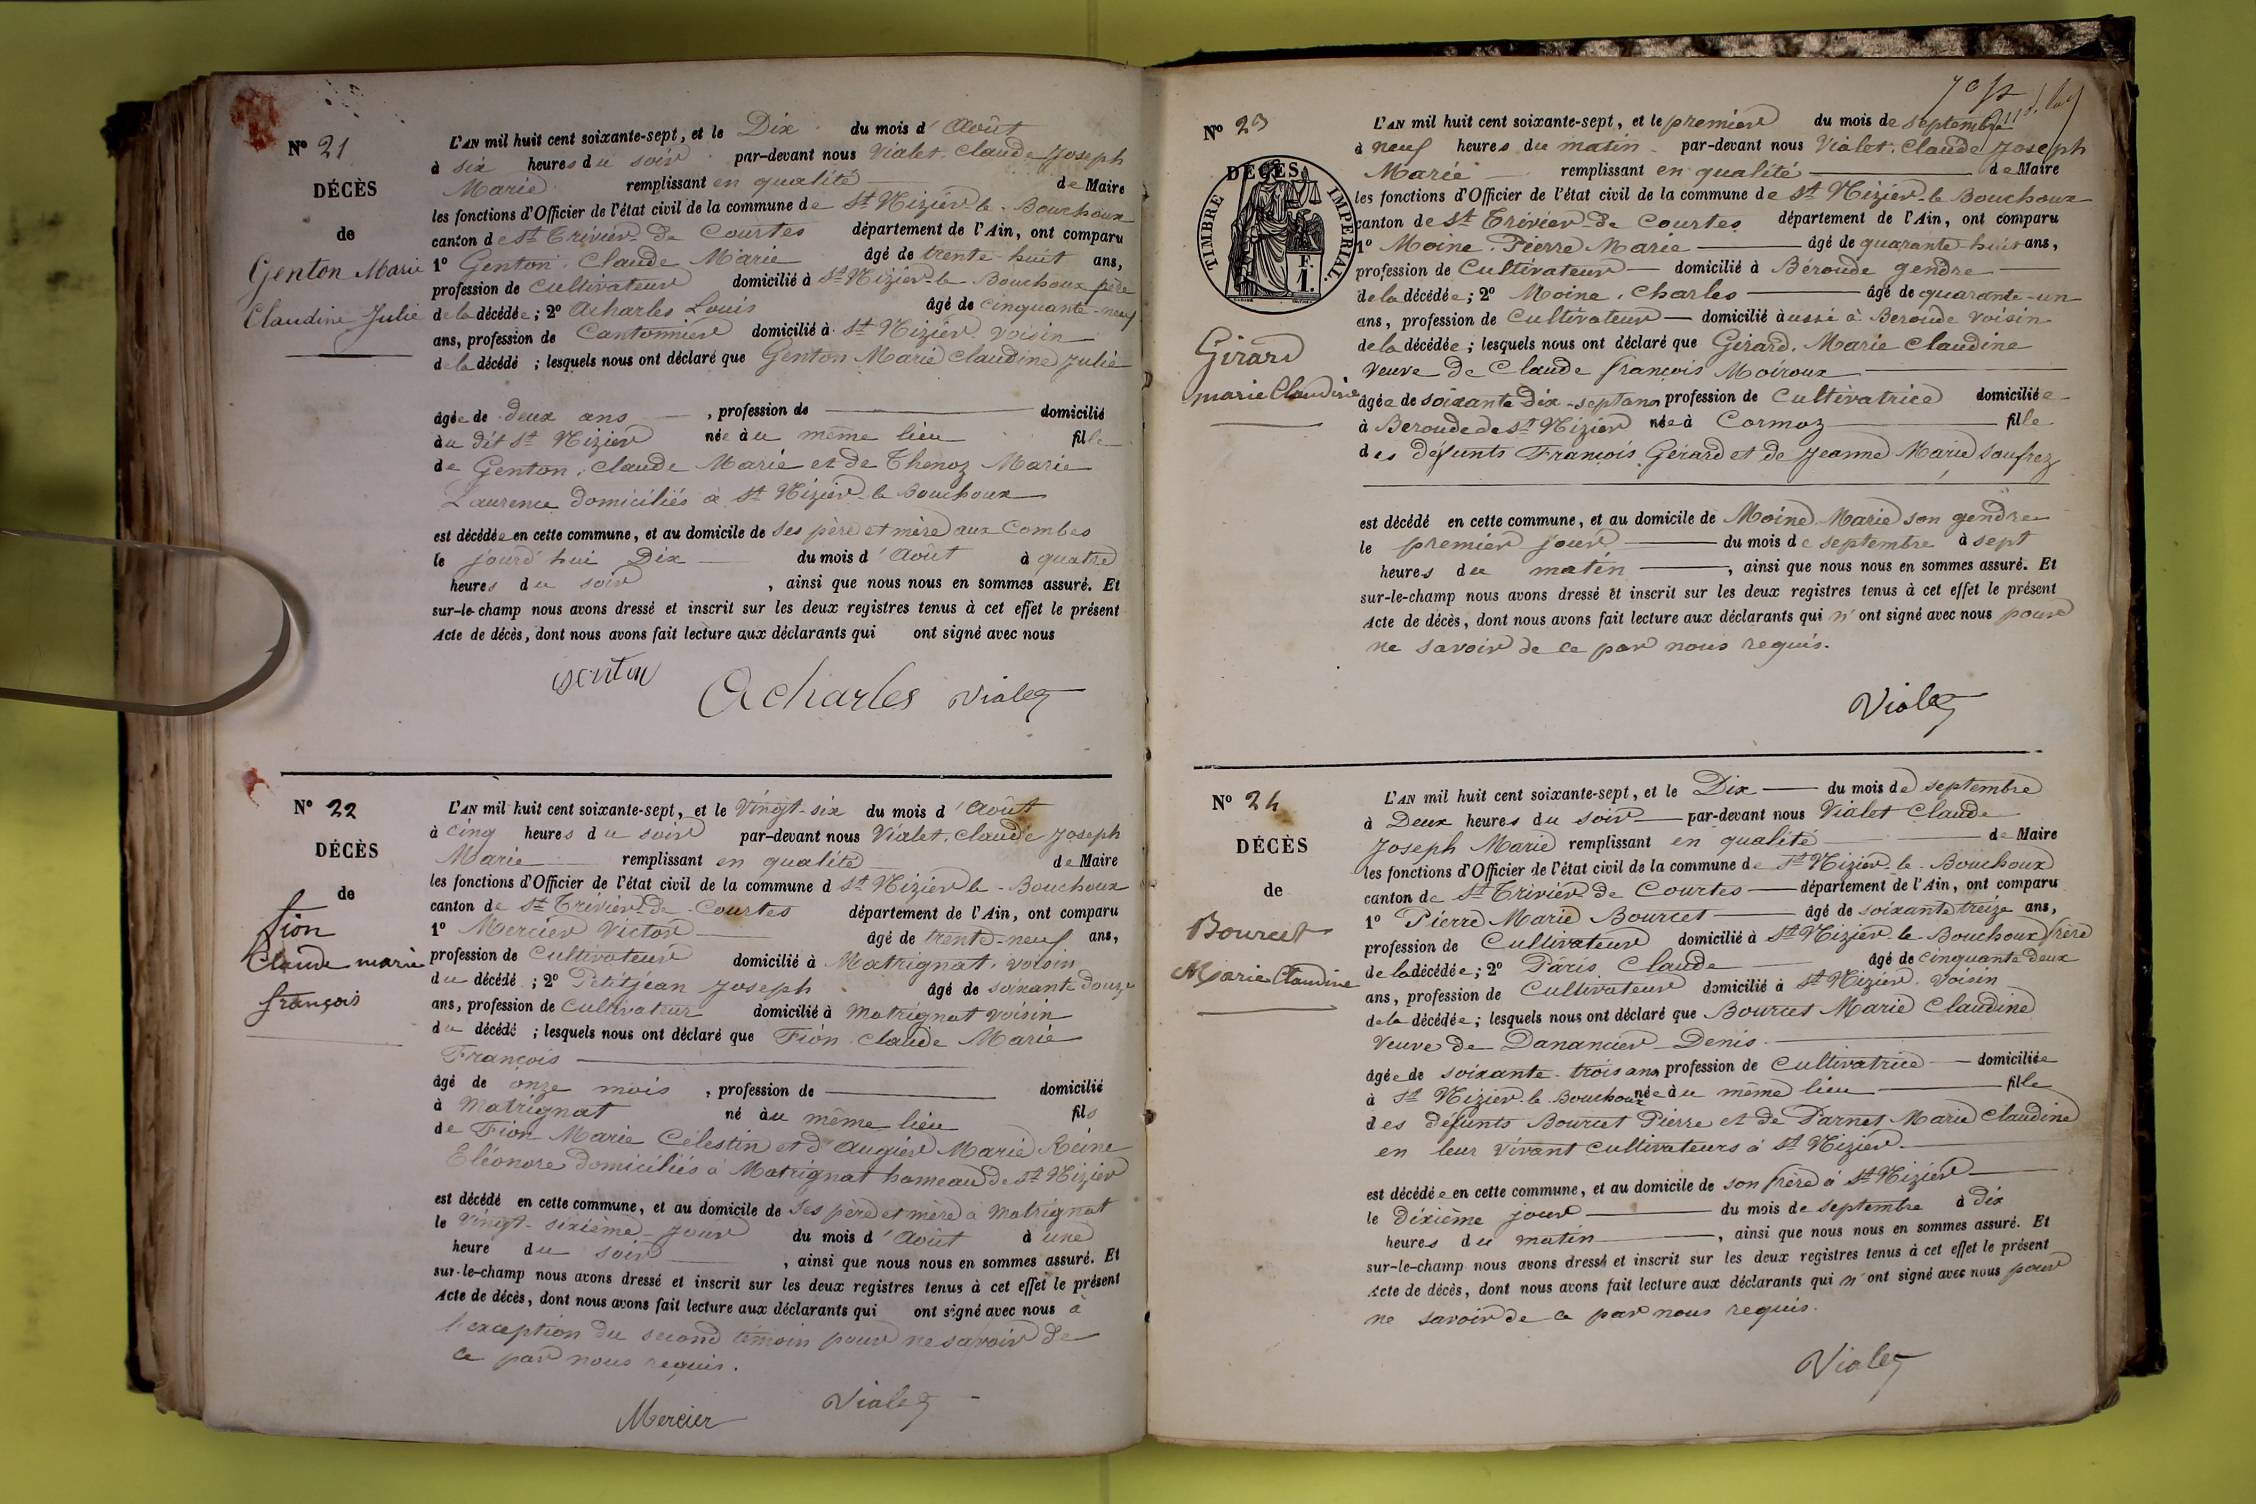 N° 21
DÉCÈS
de
Genton Marie
Claudine Julie
L'AN mil huit cent soixante-sept, et le Dix du mois d'Août
à six heures du soir par-devant nous Vialet, Claude Joseph
Marie remplissant en qualité de Maire
les fonctions d'Officier de l'état civil de la commune de St Nizier-le-Bouchoux
canton de St Trivier-de Courtes département de l'Ain, ont comparu
1° Genton, Claude Marie âgé de trente-huit ans,
profession de Cultivateur domicilié à St Nizier-le Bouchoux père
de la décédée ; 2° Acharles Louis âgé de cinquante-neuf
ans, profession de Cantonnier domicilié à St Nizier voisin
de la décédé ; lesquels nous ont déclaré que Genton Marie Claudine Julie
âgée de deux ans , profession de domicilié
àu dit St Nizier née àu même lieu fille
de Genton, Claude Marie et de Thenoz Marie
Laurence domiciliés à St Nizier-le Bouchoux
est décédée en cette commune, et au domicile de ses père et mère aux Combes
le jourd'hui Dix du mois d'Août à quatre
heures du soir , ainsi que nous nous en sommes assuré. Et
sur-le-champ nous avons dressé et inscrit sur les deux registres tenus à cet effet le présent
Acte de décès, dont nous avons fait lecture aux déclarants qui ont signé avec nous
genton Acharles Vialet
N° 22
DÉCÈS
de
Fion
Claude marie
françois
L'AN mil huit cent soixante-sept, et le Vingt-six du mois d'Août
à cinq heures du soir par-devant nous Vialet, Claude Joseph
Marie remplissant en qualité de Maire
les fonctions d'Officier de l'état civil de la commune d St Nizier le-Bouchoux
canton de St Trivier-De-Courtes département de l'Ain, ont comparu
1° Mercier Victor âgé de trente-neuf ans,
profession de Cultivateur domicilié à Matrignat, voisin
du décédé ; 2° Petitjean Joseph âgé de soixante douze
ans, profession de Cultivateur domicilié à Matrignat voisin
du décédé ; lesquels nous ont déclaré que Fion Claude Marie
François
âgé de onze mois , profession de domicilié
à Matrignat né àu même lieu fils
de Fion Marie Célestin et d'Augier Marie Reine
Eléonore domiciliés à Matrignat hameau de St Nizier
est décédé en cette commune, et au domicile de ses père et mère à Matrignat
le Vingt-sixième jour du mois d'Août à une
heure du soir , ainsi que nous nous en sommes assuré. Et
sur-le-champ nous avons dressé et inscrit sur les deux registres tenus à cet effet le présent
Acte de décès, dont nous avons fait lecture aux déclarants qui ont signé avec nous à
l'exception du second témoin pour ne savoir de
ce par nous requis.
Mercier Vialet
N° 23
DÉCÈS
TIMBRE IMPÉRIAL.
F.
1.
Girard
marie Claudine
L'AN mil huit cent soixante-sept, et le premier du mois de septembre
à neuf heures du matin par-devant nous Vialet, Claude Joseph
Marie remplissant en qualité de Maire
les fonctions d'Officier de l'état civil de la commune de St Nizier-le Bouchoux
canton de St Trivier-de Courtes département de l'Ain, ont comparu
1° Moine, Pierre Marie âgé de quarante-huit ans,
profession de Cultivateur domicilié à Béroude gendre
de la décédée ; 2° Moine, Charles âgé de quarante-un
ans, profession de Cultivateur domicilié àussi à Beroude voisin
de la décédée ; lesquels nous ont déclaré que Girard, Marie Claudine
Veuve de Claude françois Moiroux
âgée de soixante Dix-sept ans profession de Cultivatrice domiciliée
à Beroude de St Nizier née à Cormoz fille
des défunts François Gérard et de Jeanne Marie Saufrez
est décédé en cette commune, et au domicile de Moine Marie son gendre
le premier jour du mois de septembre à sept
heures du matin , ainsi que nous nous en sommes assuré. Et
sur-le-champ nous avons dressé et inscrit sur les deux registres tenus à cet effet le présent
Acte de décès, dont nous avons fait lecture aux déclarants qui n'ont signé avec nous pour
ne savoir de ce par nous requis.
Vialet
N° 24
DÉCÈS
de
Bourcet
Marie Claudine
L'AN mil huit cent soixante-sept, et le Dix du mois de septembre
à Deux heures du soir par-devant nous Vialet Claude
Joseph Marie remplissant en qualité de Maire
les fonctions d'Officier de l'état civil de la commune de St Nizier-le-Bouchoux
canton de St Trivier-de Courtes département de l'Ain, ont comparu
1° Pierre Marie Bourcet âgé de soixante treize ans,
profession de Cultivateur domicilié à St Nizier-le Bouchoux frère
de la décédée ; 2° Pâris, Claude âgé de cinquante deux
ans, profession de Cultivateur domicilié à St Nizier voisin
de la décédée ; lesquels nous ont déclaré que Bourcet Marie Claudine
Veuve de Danancier Denis
âgée de soixante-trois ans profession de Cultivatrice domiciliée
à St Nizier-le Bouchoux née àu même lieu fille
des défunts Bourcet Pierre et de Parnet Marie Claudine
en leur vivant cultivateurs à St Nizier
est décédée en cette commune, et au domicile de son frère à St Nizier
le dixième jour du mois de septembre à dix
heures du matin , ainsi que nous nous en sommes assuré. Et
sur-le-champ nous avons dressé et inscrit sur les deux registres tenus à cet effet le présent
Acte de décès, dont nous avons fait lecture aux déclarants qui n'ont signé avec nous pour
ne savoir de ce par nous requis.
Vialet